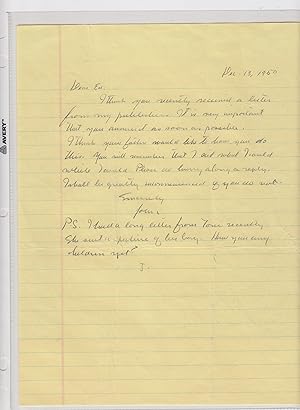 Dec. 13, 1950
Dear Ed.
I think you recently received a letter
from my publishers. It is very important
that you answered as soon as possible.
I think your father would like to have you do
this. You will remember that I said what I would
while I could. Please do hurry along a reply.
I shall be greatly inconvenienced if you do not.
Sincerely
P.S. I had a long letter from recently
She sent a picture of his boy. Have you any
children yet?
J.
AVERY